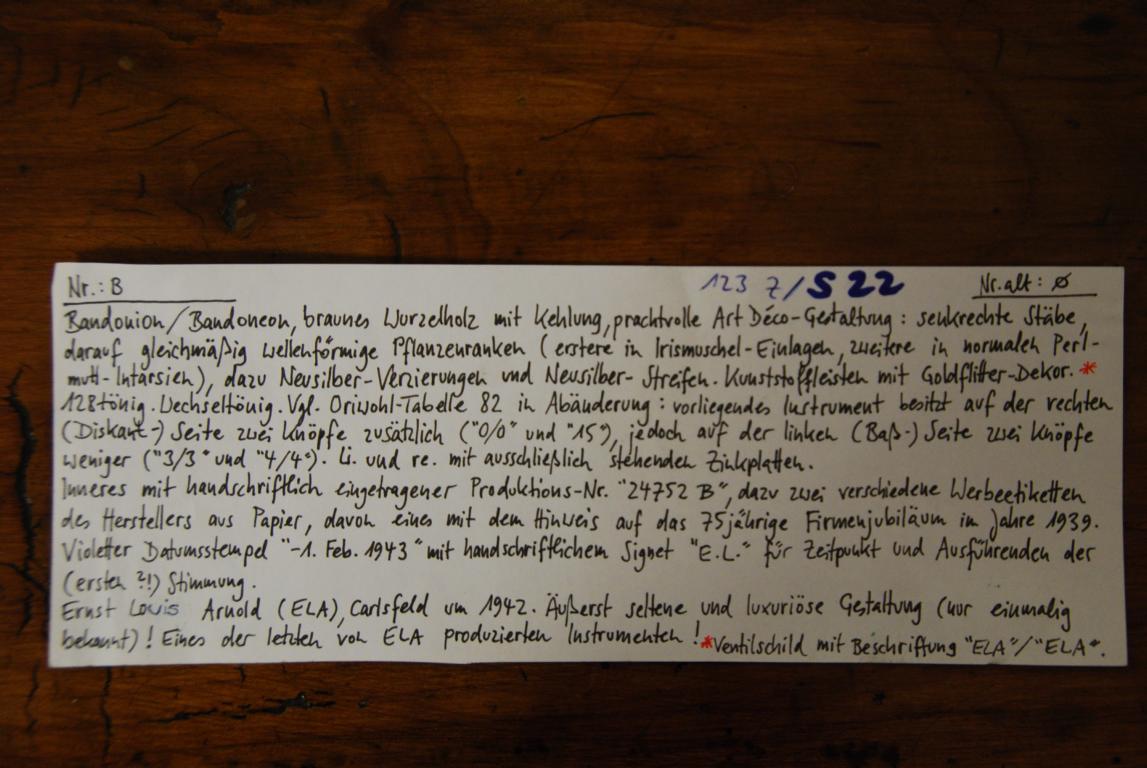 Nr.: B 123 Z/S 22 Nr. alt: ø
Bandonion/Bandoneon, braunes Wurzelholz mit Kehlung, prachtvolle Art Déco-Gestaltung: senkrechte Stäbe,
darauf gleichmäßig wellenförmige Pflanzenranken (erstere in Irismuschel-Einlagen, zweitere in normalen Perl-
mutt-Intarsien), dazu Neusilber-Verzierungen und Neusilber-Streifen. Kunststoffleisten mit Goldflitter-Dekor.*
128tönig. Wechseltönig. Vgl. Oriwohl-Tabelle 82 in Abänderung: vorliegendes Instrument besitzt auf der rechten
(Diskant-) Seite zwei Knöpfe zusätzlich ("0/0" und "15"), jedoch auf der linken (Baß-) Seite zwei Knöpfe
weniger ("3/3" und "4/4"). Li. und re. mit ausschließlich stehenden Zinkplatten.
Inneres mit handschriftlich eingetragener Produktions-Nr. "24752 B", dazu zwei verschiedene Werbeetiketten
des Herstellers aus Papier, davon eines mit dem Hinweis auf das 75jährige Firmenjubiläum im Jahre 1939.
Violetter Datumsstempel "-1. Feb. 1943" mit handschriftlichem Signet "E.L." für Zeitpunkt und Ausführenden der
(ersten ?!) Stimmung.
Ernst Louis Arnold (ELA), Carlsfeld um 1942. Äußerst seltene und luxuriöse Gestaltung (nur einmalig
bekannt)! Eines der letzten von ELA produzierten Instrumenten! *Ventilschild mit Beschriftung "ELA"/"ELA".